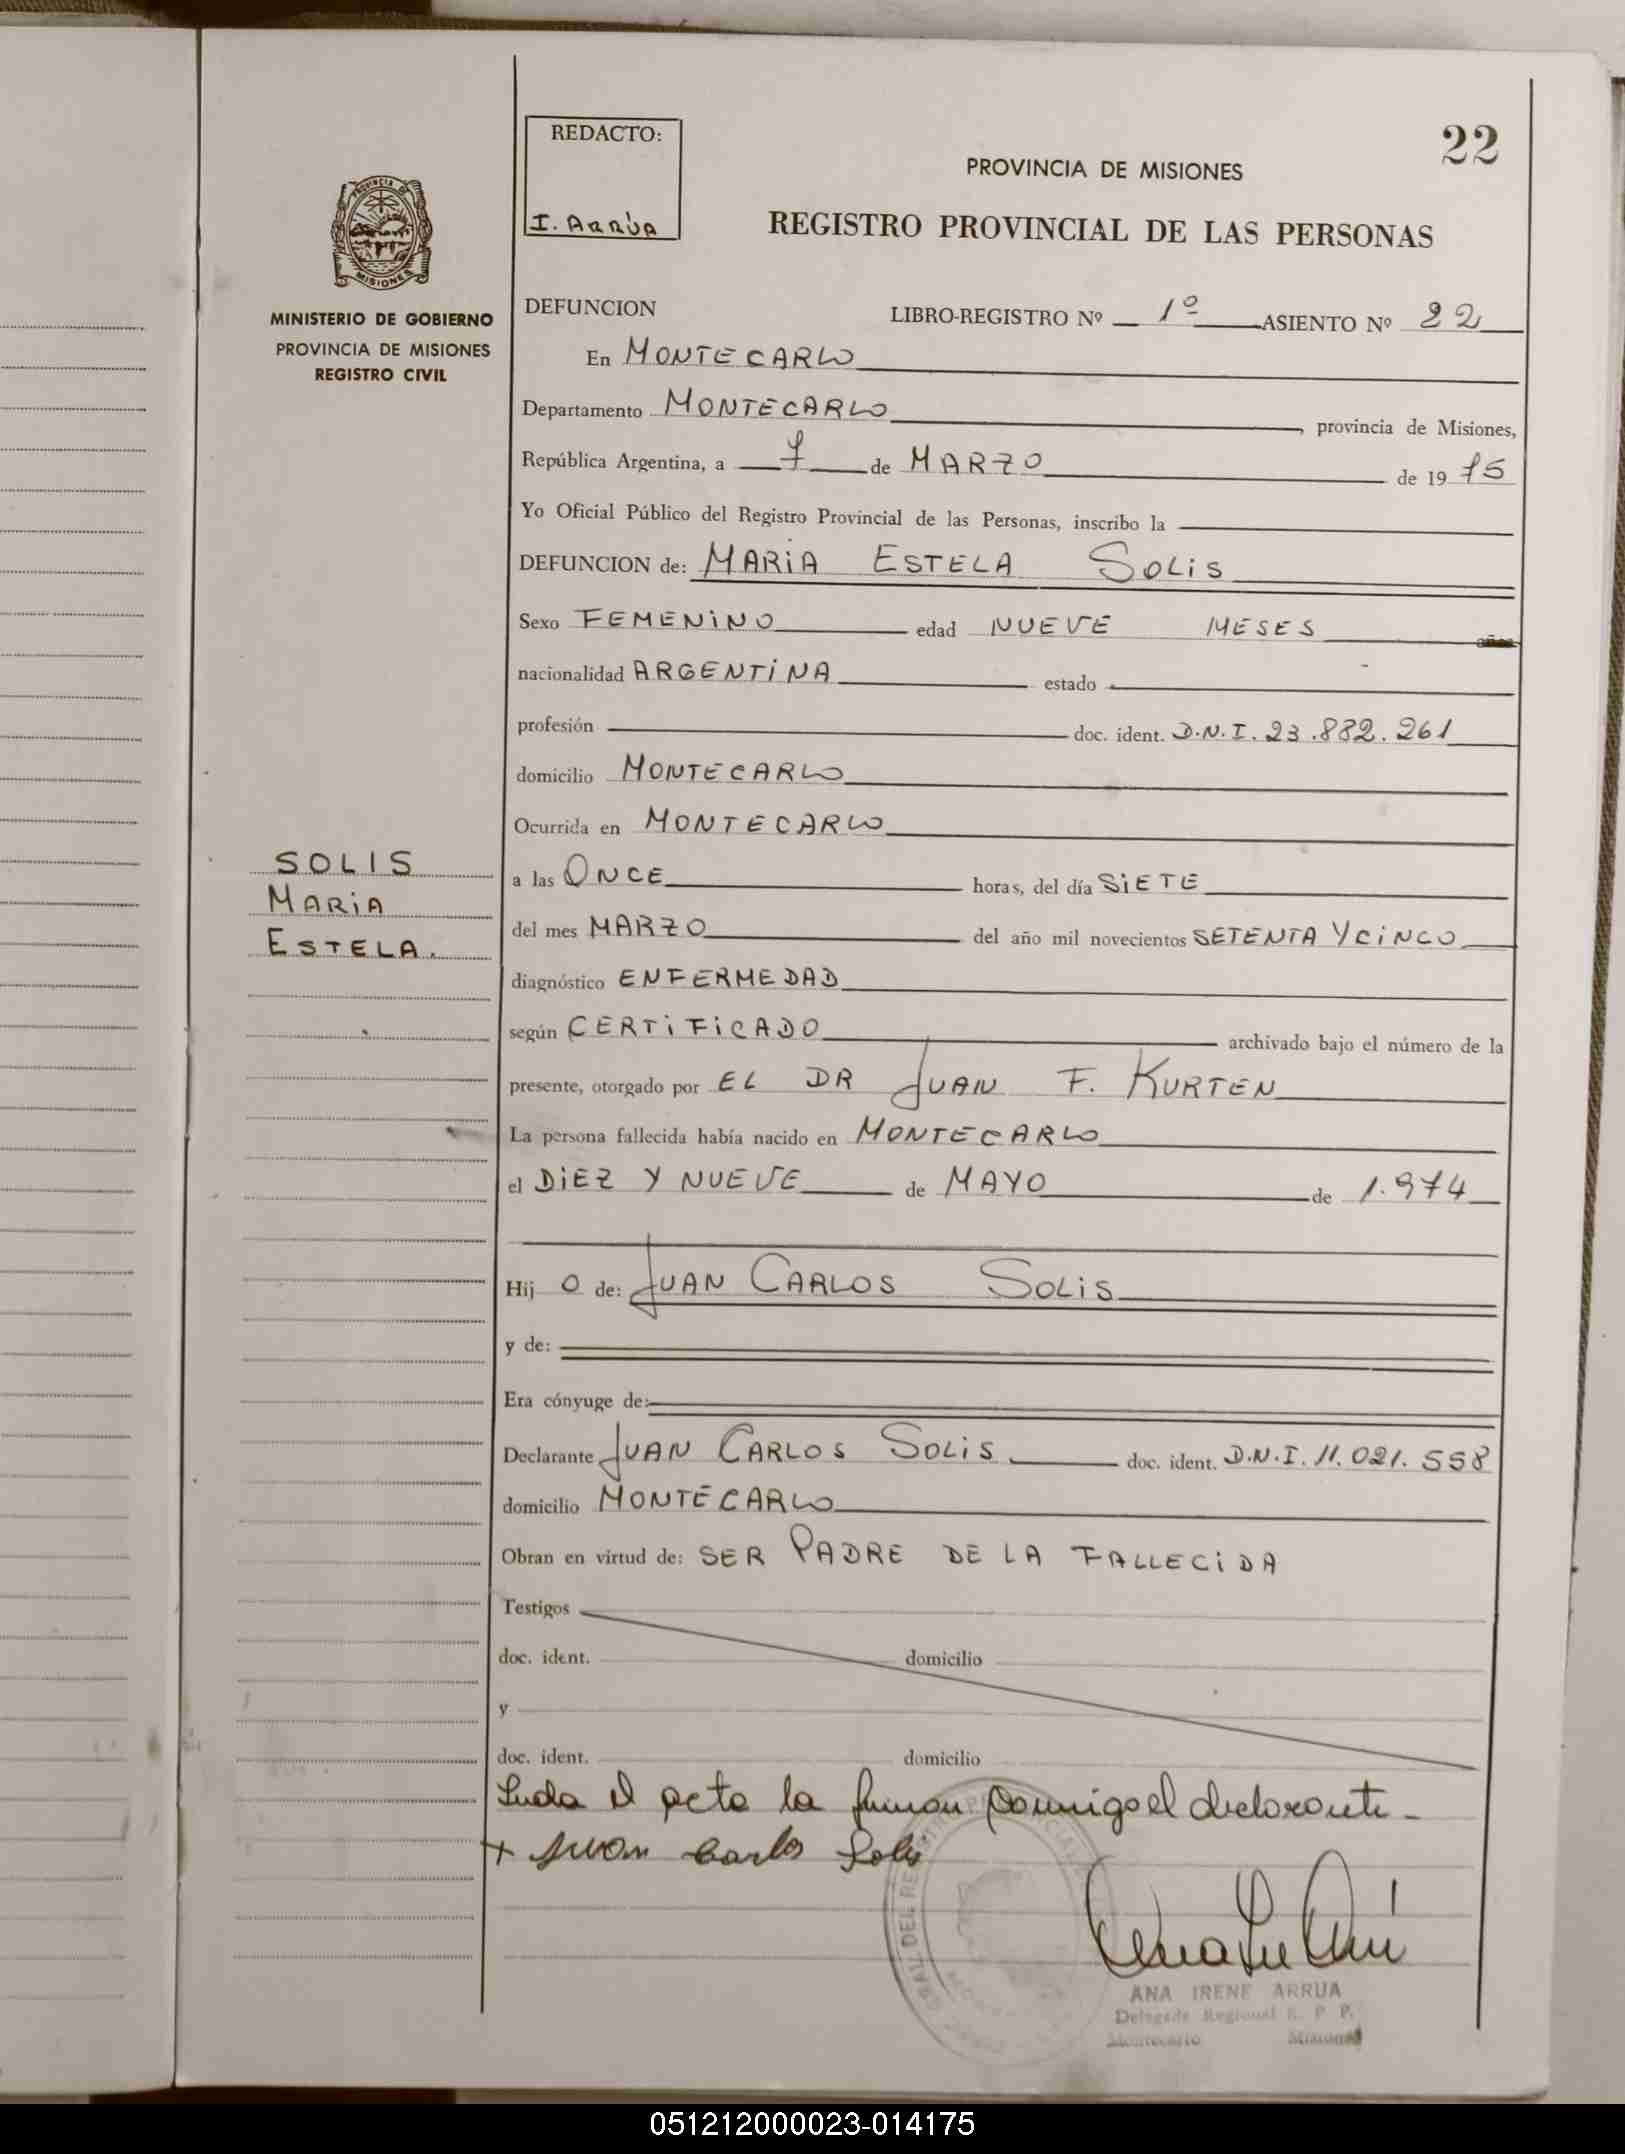 22
REDACTO:
I. ARRÚA
PROVINCIA DE MISIONES
REGISTRO PROVINCIAL DE LAS PERSONAS
PROVINCIA DE
MISIONES
MINISTERIO DE GOBIERNO
PROVINCIA DE MISIONES
REGISTRO CIVIL
DEFUNCION LIBRO-REGISTRO Nº 1º ASIENTO Nº 22
En MONTECARLO
Departamento MONTECARLO, provincia de Misiones,
República Argentina, a 7 de MARZO de 1975
Yo Oficial Público del Registro Provincial de las Personas, inscribo la
DEFUNCION de: MARIA ESTELA SOLIS
Sexo FEMENINO edad NUEVE MESES años
nacionalidad ARGENTINA estado
profesión doc. ident. D.N.I. 23.882.261
domicilio MONTECARLO
Ocurrida en MONTECARLO
SOLIS
MARIA
ESTELA.
a las ONCE horas, del día SIETE
del mes MARZO del año mil novecientos SETENTA Y CINCO
diagnóstico ENFERMEDAD
según CERTIFICADO archivado bajo el número de la
presente, otorgado por EL DR JUAN F. KURTEN
La persona fallecida había nacido en MONTECARLO
el DIEZ Y NUEVE de MAYO de 1.974
Hij O de: JUAN CARLOS SOLIS
y de:
Era cónyuge de:
Declarante JUAN CARLOS SOLIS doc. ident. D.N.I. 11.021.558
domicilio MONTECARLO
Obran en virtud de: SER PADRE DE LA FALLECIDA
Testigos
doc. ident. domicilio
y
doc. ident. domicilio
Leida el acta la firman conmigo el declarante -
+ Juan Carlos Solis
ANA IRENE ARRUA
Delegada Regional R. P. P.
Montecarlo Misiones
051212000023-014175